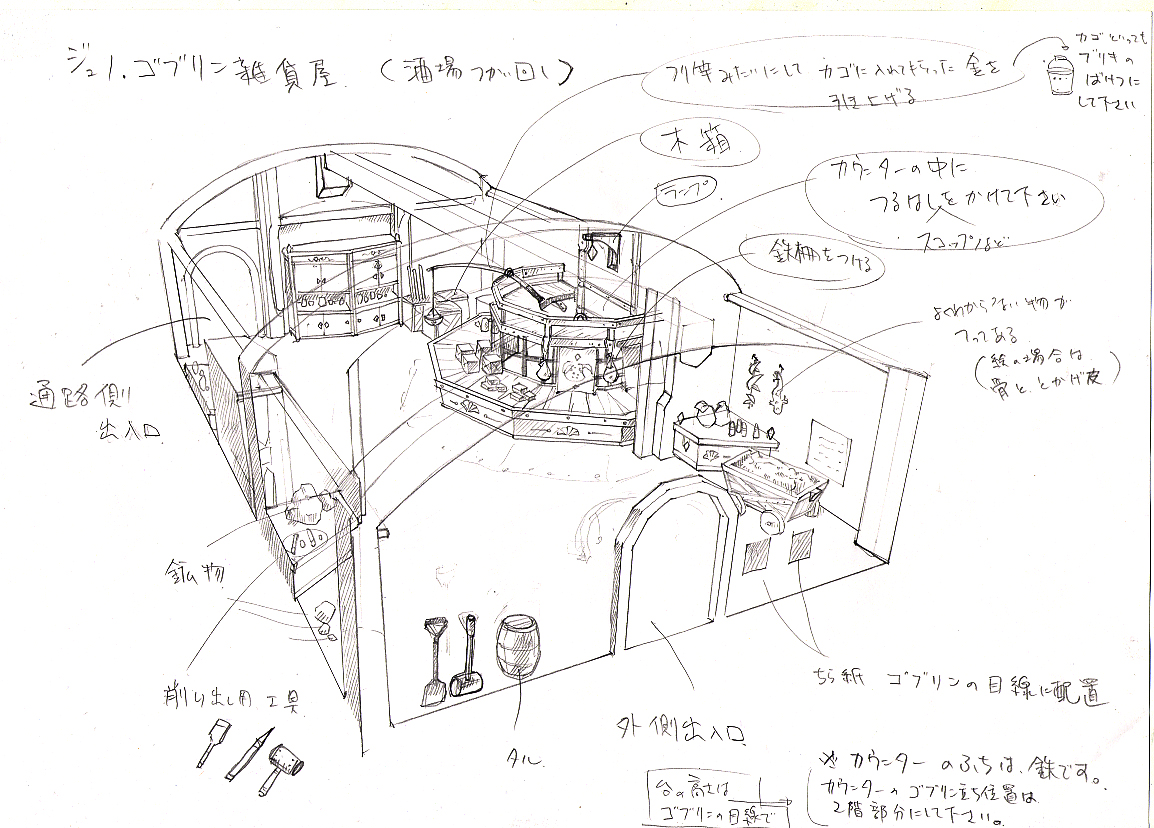 ジュノ.ゴブリン雑貨屋 (酒場つかい回し)
つり竿みたいにして カゴに入れてもらった 金を
引き上げる
カゴといっても
ブリキの
ばけつに
して下さい
木箱
ランプ
カウンターの中に
つるはしをかけて下さい
スコップなど
鉄柵をつける
よくわからない物が
つってある
(絵の場合は
骨と、とかげ皮)
通路側
出入口
鉱物
削り出し用工具
タル
外側出入口
ちら紙 ゴブリンの目線に配置
台の高さは
ゴブリンの目線で
※カウンターのふちは、鉄です。
カウンターのゴブリン立ち位置は
2階部分にして下さい。